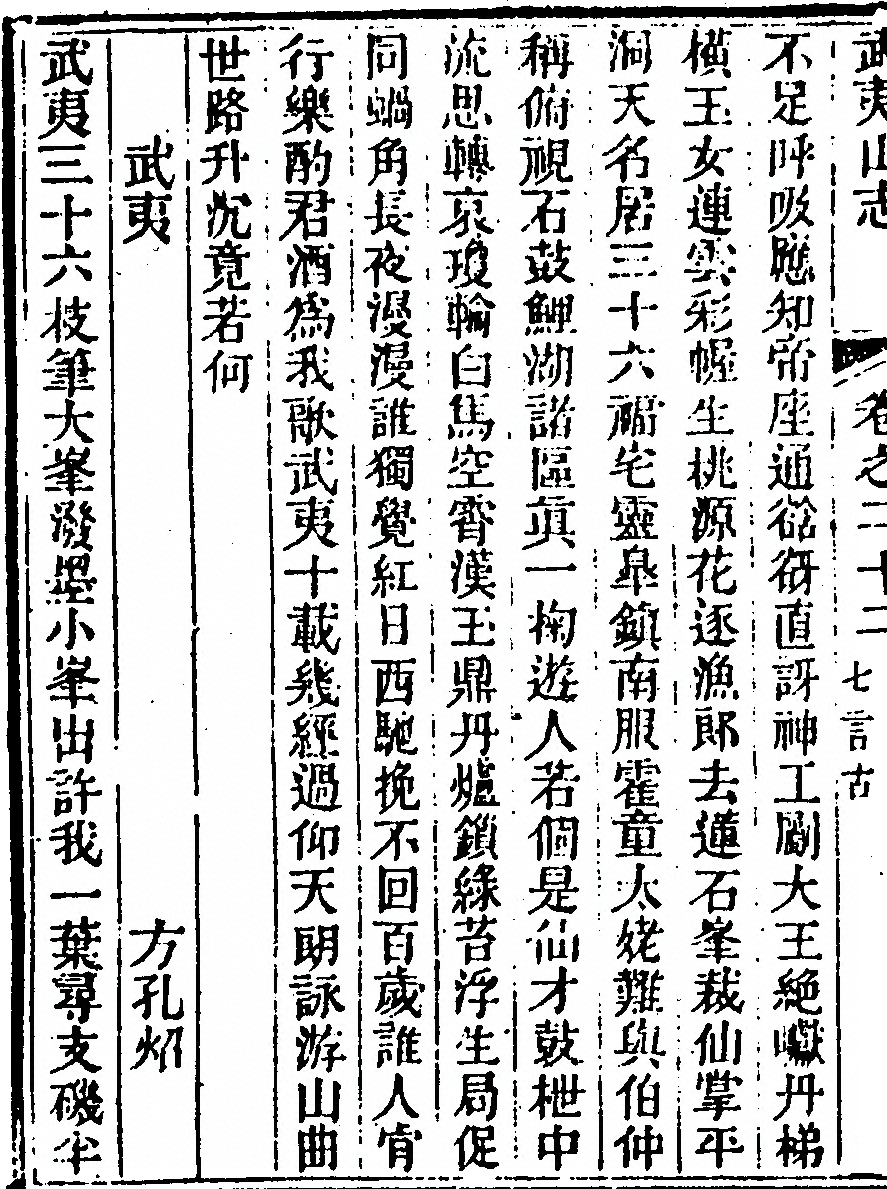 武夷山志 卷之二十二 七言古
不足呼吸應知帝座通谽谺直訝神工劚大王絶巘丹梯
橫玉女連雲彩幄生桃源花逐漁郎去蓮石峯裁仙掌平
洞天名居三十六福宅靈臯鎮南服霍童太姥難與伯仲
稱俯視石鼓鯉湖諸區眞一掬遊人若個是仙才鼓枻中
流思轉哀瓊輪白馬空霄漢玉鼎丹爐鎖綠苔浮生局促
同蝸角長夜漫漫誰獨覺紅日西馳挽不回百歲誰人肯
行樂酌君酒爲我歌武夷十載幾經過仰天朗詠游山曲
世路升沉竟若何
武夷 方孔炤
武夷三十六枝筆大峯潑墨小峯出許我一葉尋支磯半